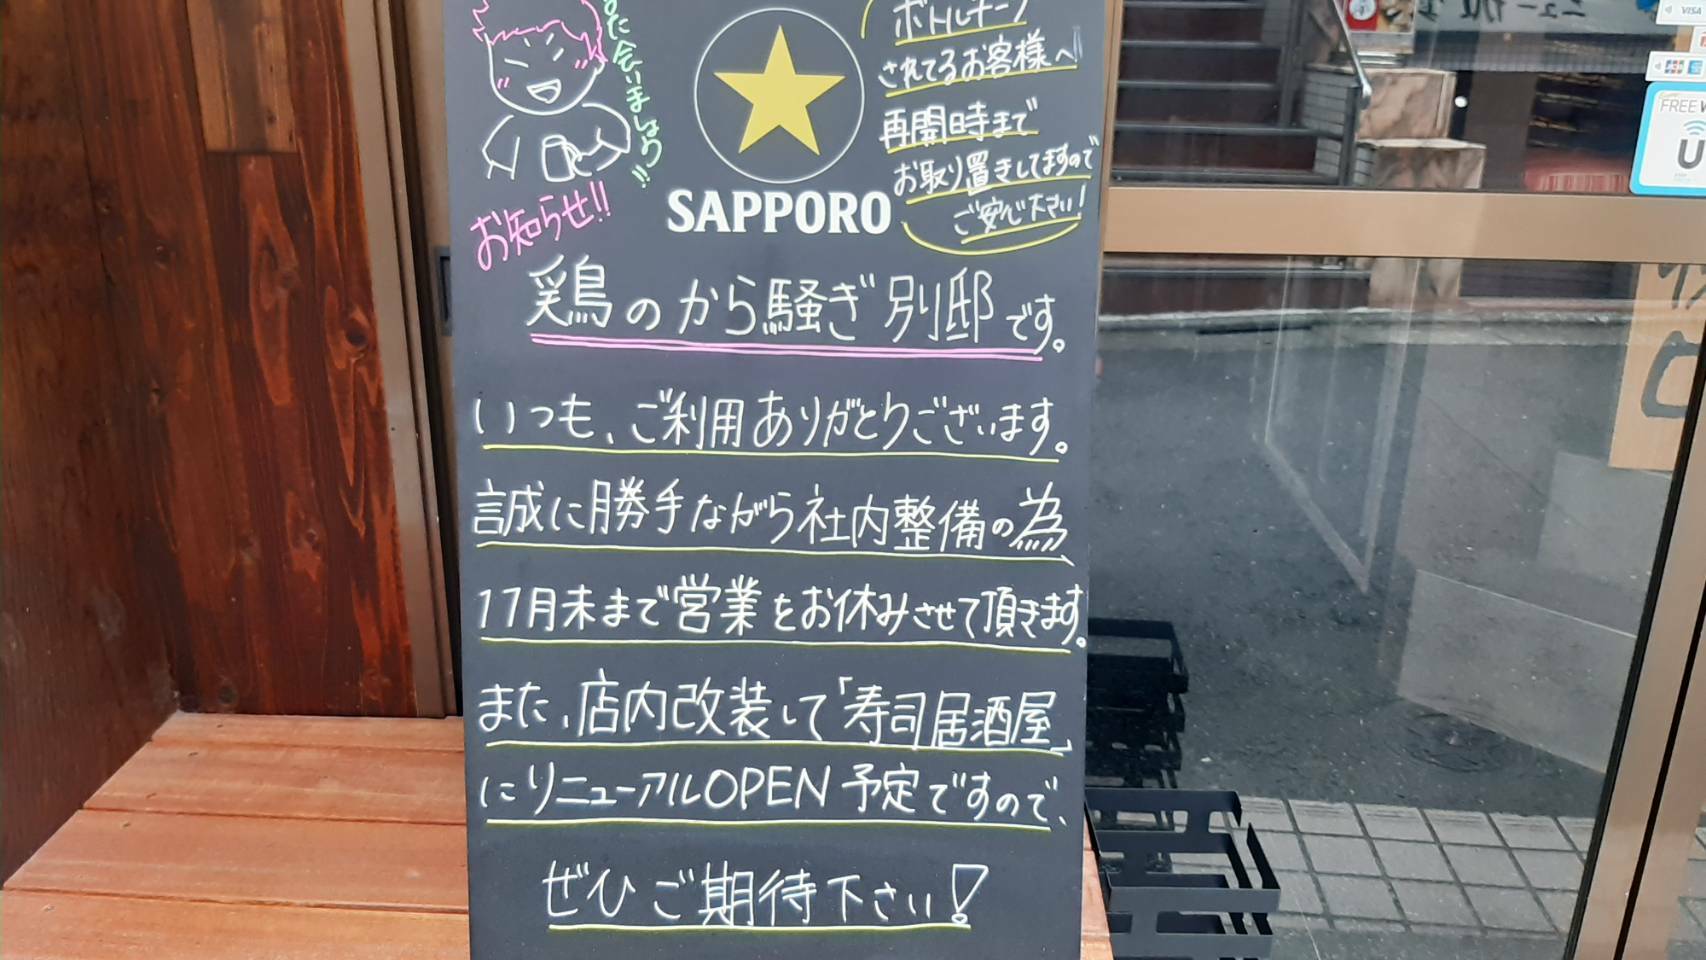 また会いましょう!!
ボトルキープ
されてるお客様へ
再開時まで
お取り置きしてますので
ご安心下さい!
SAPPORO
お知らせ!!
鶏のから騒ぎ別邸です。
いつも、ご利用ありがとうございます。
誠に勝手ながら社内整備の為、
11月末まで営業をお休みさせて頂きます。
また、店内改装して「寿司居酒屋」
にリニューアルOPEN予定ですので、
ぜひご期待下さい!
VISA
JCB
FREE